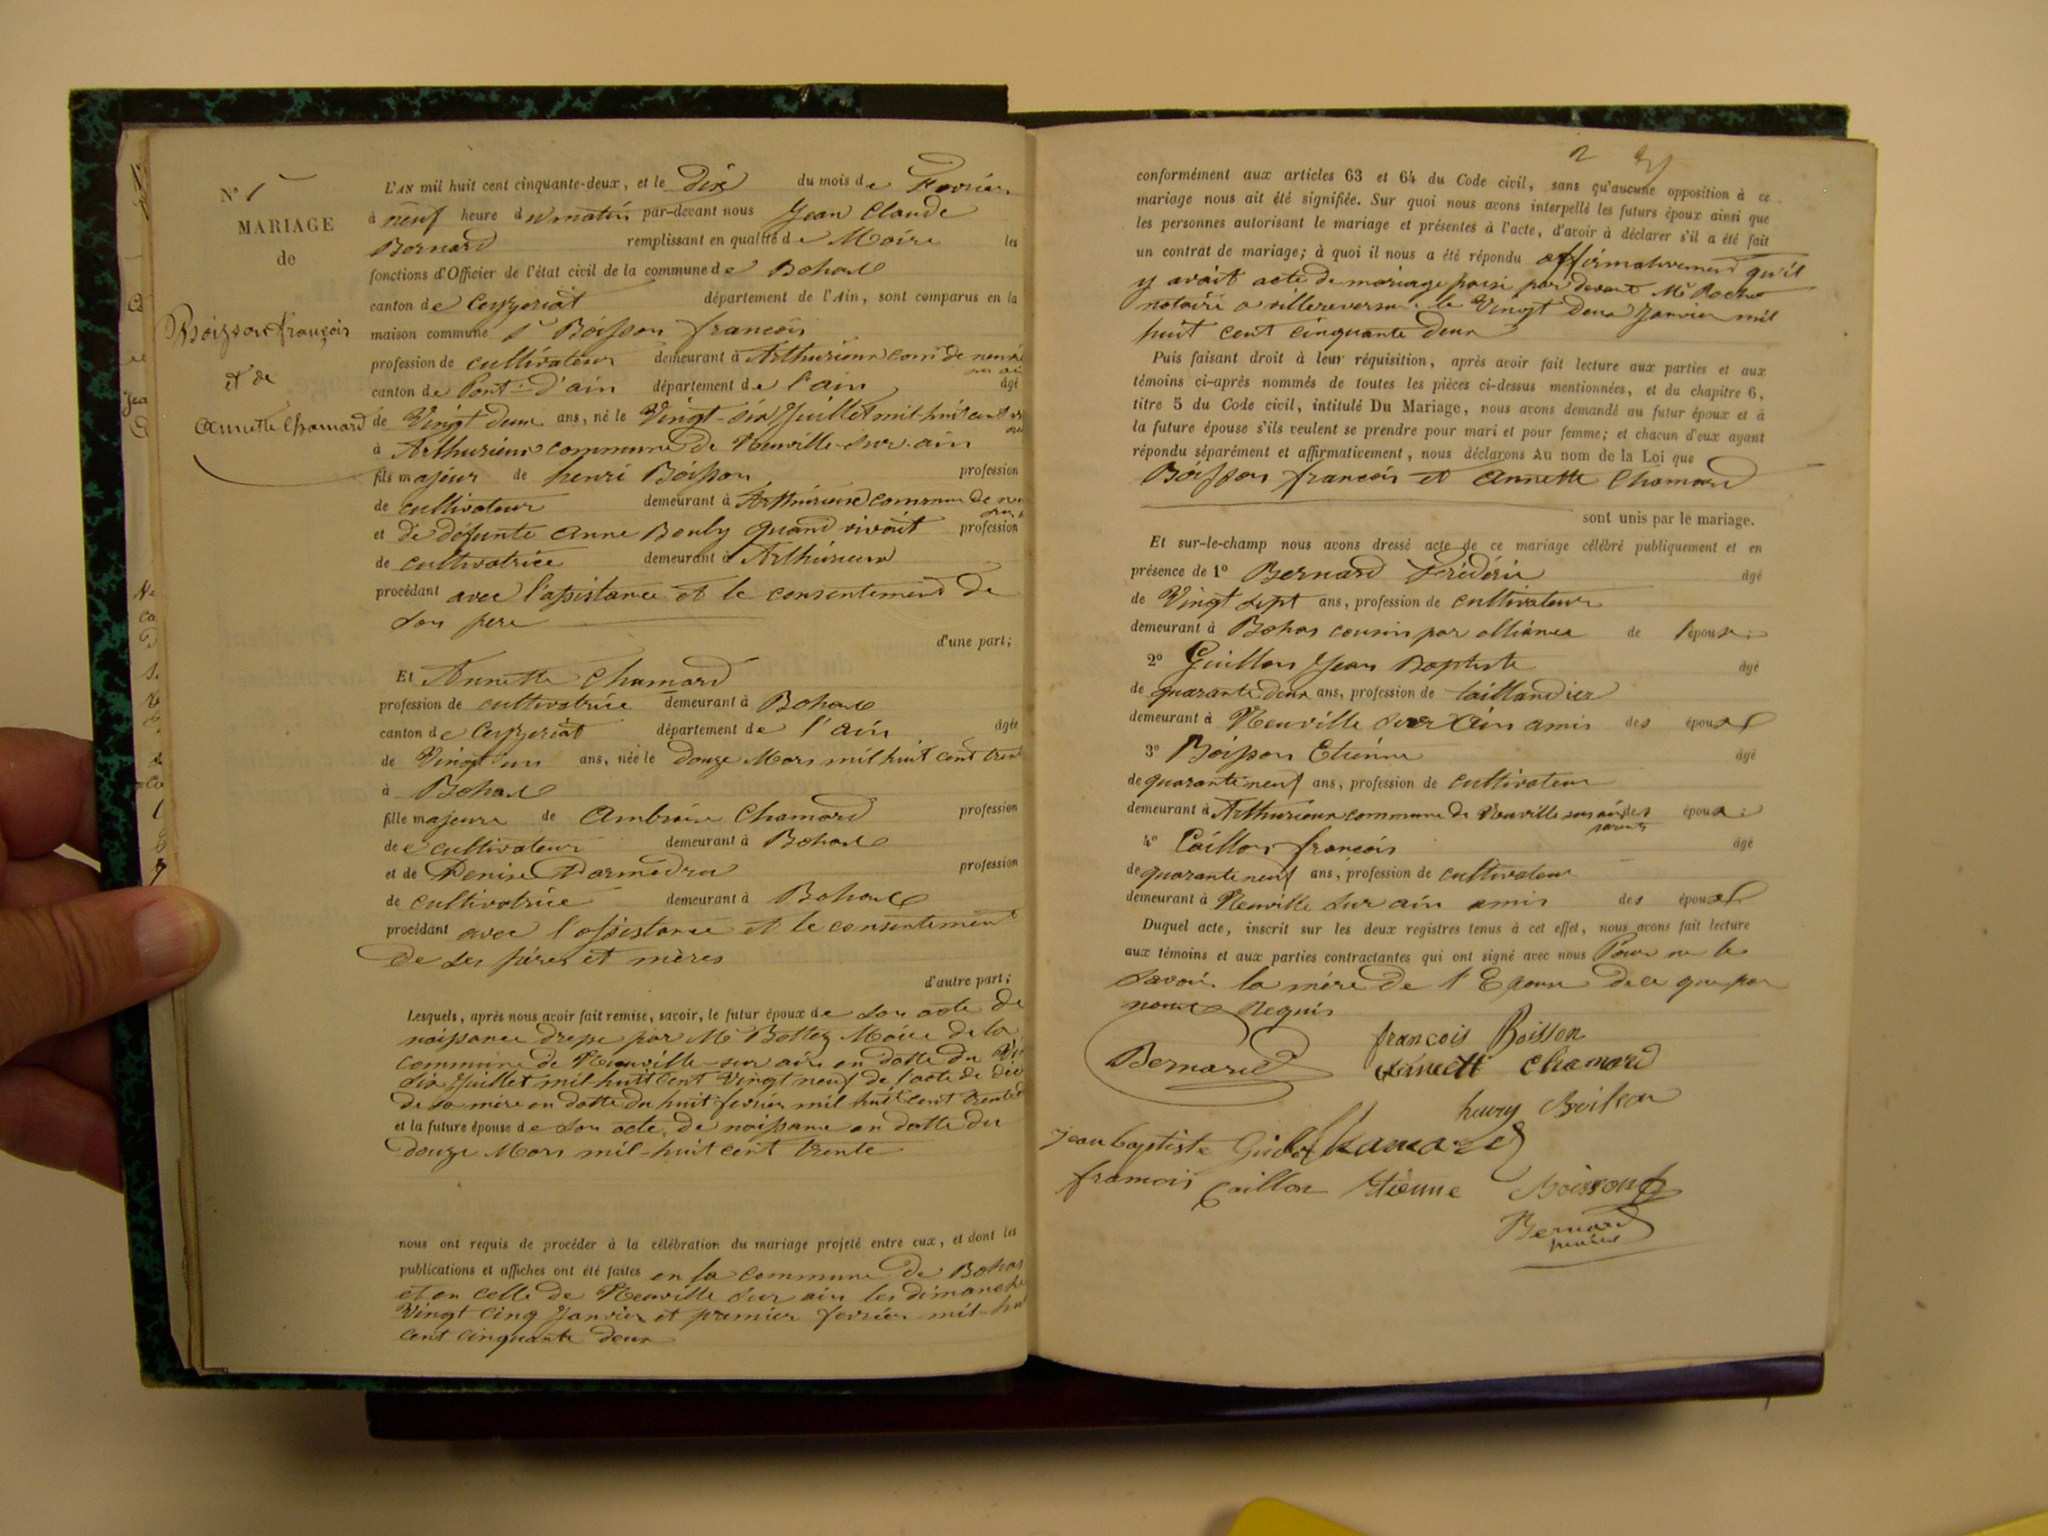 N° 1
MARIAGE
de
Boisson françois
et de
annette Chamard
L'AN mil huit cent cinquante-deux, et le Dix du mois de Fevrier
à neuf heure du matin par-devant nous Jean Claude
Bernard remplissant en qualité de Maire les
fonctions d'Officier de l'état civil de la commune de Bohas
canton de Ceyzeriat département de l'Ain, sont comparus en la
maison commune Boisson francois
profession de cultivateur demeurant à Arthurieux com de
canton de Pont-D'ain département de l'ain âgé
de Vingt deux ans, né le Vingt-six Juillet mil huit cent
à Arthurieux commune de Neuville-sur-ain
fils majeur de henri Boisson profession
de cultivateur demeurant à Arthurieux commune de
et de défunte anne Bouly quand vivait profession
de cultivatrice demeurant à Arthurieux
procédant avec l'assistance et le consentement de
son pere
d'une part;
Et Annette Chamard
profession de cultivatrice demeurant à Bohas
canton de Ceyzeriat département de l'ain âgée
de Vingt un ans, née le douze Mars mil huit cent trente
à Bohas
fille majeure de Ambroise Chamard profession
de cultivateur demeurant à Bohas
et de Denise Darmedru profession
de cultivatrice demeurant à Bohas
procédant avec l'assistance et le consentement
de ses péres et mères
d'autre part;
Lesquels, après nous avoir fait remise, savoir, le futur époux de son acte de
naissance dressé par Mr Bottez Maire de la
commune de Neuville-sur ain en datte du
six Juillet mil huit cent vingt neuf de l'acte de
de sa mère en datte du huit fevrier mil huit cent
et la future épouse de son acte de naissance en datte du
douze Mars mil-huit cent trente
nous ont requis de procéder à la célébration du mariage projeté entre eux, et dont les
publications et affiches ont été faites en la commune de Bohas
et en celle de Neuville sur ain les dimanche
Vingt cinq Janvier et premier fevrier mil-huit
cent cinquante deux
2
conformément aux articles 63 et 64 du Code civil, sans qu'aucune opposition à ce
mariage nous ait été signifiée. Sur quoi nous avons interpellé les futurs époux ainsi que
les personnes autorisant le mariage et présentes à l'acte, d'avoir à déclarer s'il a été fait
un contrat de mariage; à quoi il nous a été répondu affirmativement qu'il
y avait acte de mariage passé par devant Me Rochet
notaire a villereversure le Vingt Deux Janvier mil
huit cent cinquante deux
Puis faisant droit à leur réquisition, après avoir fait lecture aux parties et aux
témoins ci-après nommés de toutes les pièces ci-dessus mentionnées, et du chapitre 6,
titre 5 du Code civil, intitulé Du Mariage, nous avons demandé au futur époux et à
la future épouse s'ils veulent se prendre pour mari et pour femme; et chacun d'eux ayant
répondu séparément et affirmativement, nous déclarons Au nom de la Loi que
Boisson francois et annette Chamard
sont unis par le mariage.
Et sur-le-champ nous avons dressé acte de ce mariage célébré publiquement et en
présence de 1° Bernard Frédéric âgé
de Vingt sept ans, profession de cultivateur
demeurant à Bohas cousin par alliance de l'épouse
2° Guillon Jean Baptiste âgé
de quarante deux ans, profession de taillandier
demeurant à Neuville sur Ain amis des époux
3° Boisson Etienne âgé
de quarante neuf ans, profession de cultivateur
demeurant à Arthurieux commune de Neuville sur ain des époux
parents
4° Caillon francois âgé
de quarante neuf ans, profession de cultivateur
demeurant à Neuville sur ain amis des époux
Duquel acte, inscrit sur les deux registres tenus à cet effet, nous avons fait lecture
aux témoins et aux parties contractantes qui ont signé avec nous Pour ne le
savoir la mère de l'Epouse de ce que par
nous Requis
Bernard
francois Boisson
annette chamard
henry Boisson
jean baptiste Guillon
Chamard
francois Caillon
Etienne Boisson
Bernard